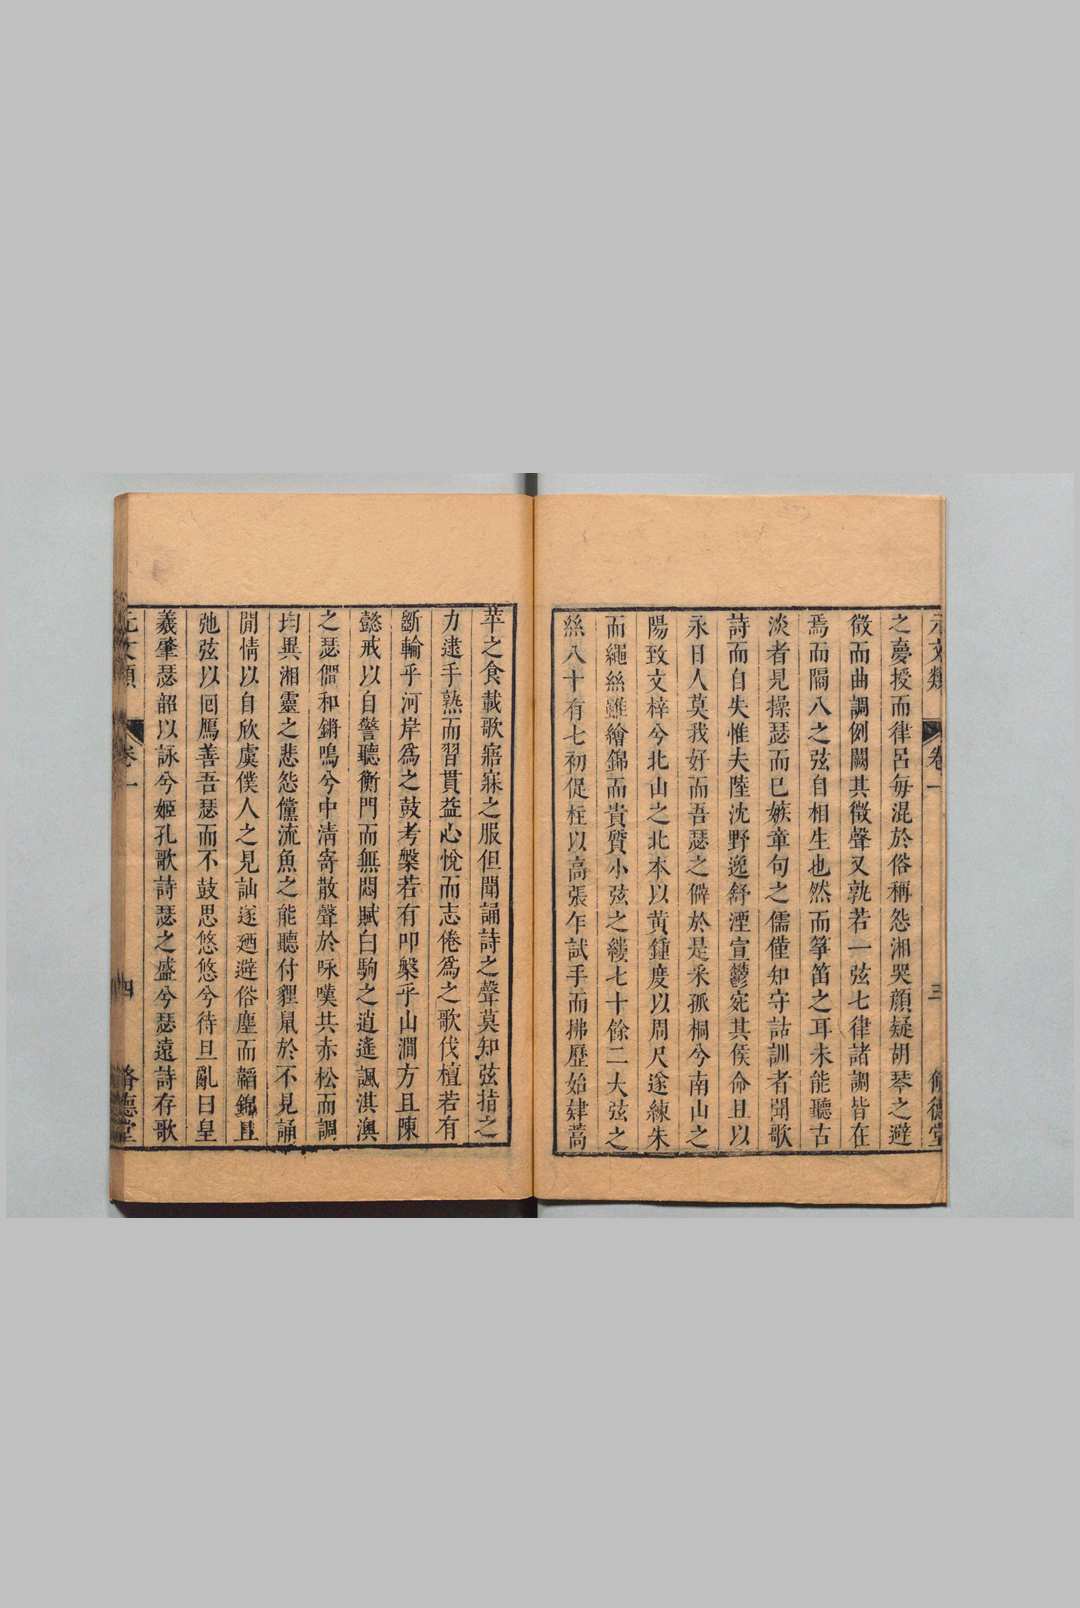 元文類 卷一 三 脩德堂
之憂授而律呂每混於俗稱怨湘哭顏疑胡琴之避
徵而曲調例闕其徵聲又孰若一弦七律諸調皆在
焉而隔八之弦自相生也然而箏笛之耳未能聽古
淡者見操瑟而已嫉章句之儒僅知守詁訓者聞歌
詩而自失惟夫陸沈野逸舒湮宣鬱宛其侯命且以
永日人莫我好而吾瑟之僻於是采孤桐兮南山之
陽致文梓兮北山之北本以黃鍾度以周尺遂練朱
而繩絲雖繪錦而貴質小弦之縷七十餘二大弦之
絲八十有七初促柱以高張乍試手而拂歷始肄蒿
苹之食載歌寤寐之服但聞誦詩之聲莫知弦指之
力逮手熟而習貫益心悅而志倦爲之歌伐檀若有
斷輪乎河岸爲之鼓考槃若有叩槃乎山澗方且陳
懿戒以自警聽衡門而無悶賦白駒之逍遙諷淇澳
之瑟僩和鏘鳴兮中清寄散聲於咏嘆共赤松而調
均異湘靈之悲怨儻流魚之能聽付貍鼠於不見誦
閒情以自欣虞僕人之見訕遂廼避俗塵而韜錦且
弛弦以囘鴈善吾瑟而不鼓思悠悠兮待旦亂曰皇
羲肇瑟韶以詠兮姬孔歌詩瑟之盛兮瑟遠詩存歌
元文類 卷一 四 脩德堂